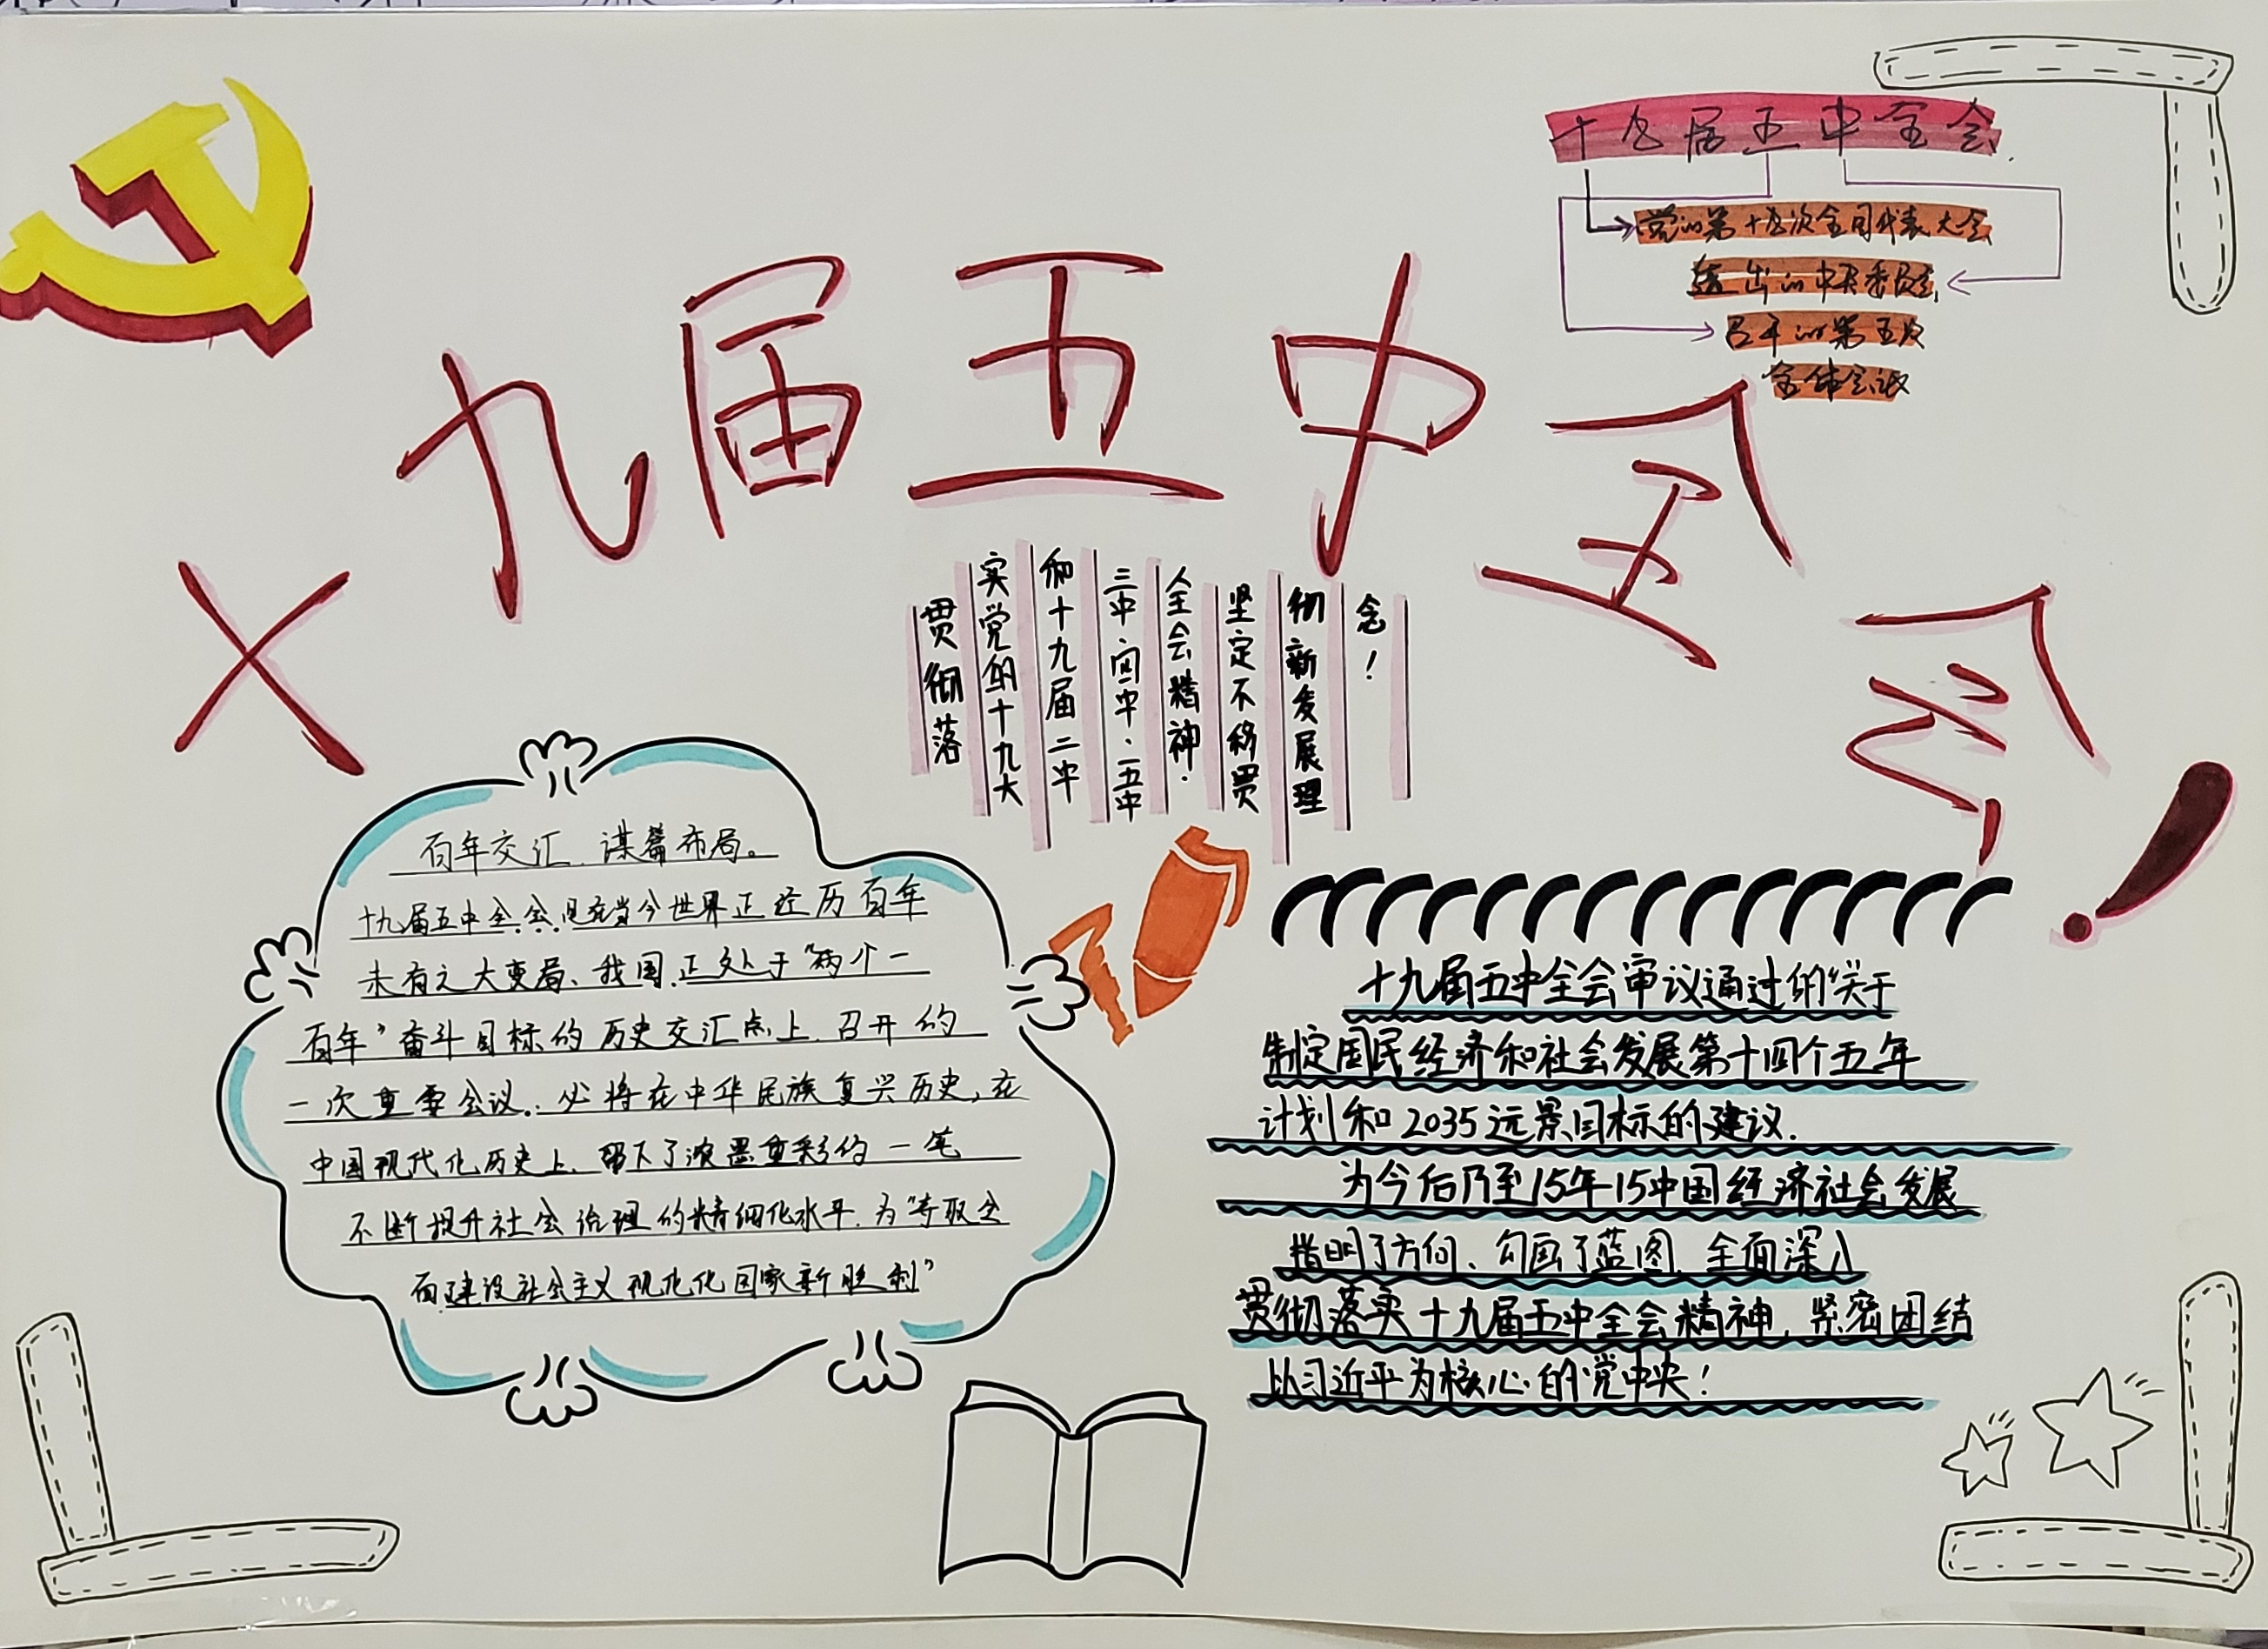 十九届五中全会!
十九届五中全会
党的第十九次全国代表大会
选出的中央委员会
召开的第五次
全体会议
贯彻落
实党的十九大
和十九届二中
三中、四中、五中
全会精神.
坚定不移贯
彻新发展理
念!
百年交汇.谋篇布局。
十九届五中全会.是在当今世界正经历百年
未有之大变局、我国正处于“两个一
百年”奋斗目标的历史交汇点上.召开的
一次重要会议.必将在中华民族复兴历史,在
中国现代化历史上.留下了浓墨重彩的一笔
不断提升社会治理的精细化水平.为“夺取全
面建设社会主义现代化国家新胜利”
十九届五中全会审议通过的“关于
制定国民经济和社会发展第十四个五年
计划和2035远景目标的建议.
为今后乃至15年15中国经济社会发展
指明了方向、勾画了蓝图.全面深入
贯彻落实十九届五中全会精神,紧密团结
以习近平为核心的党中央!